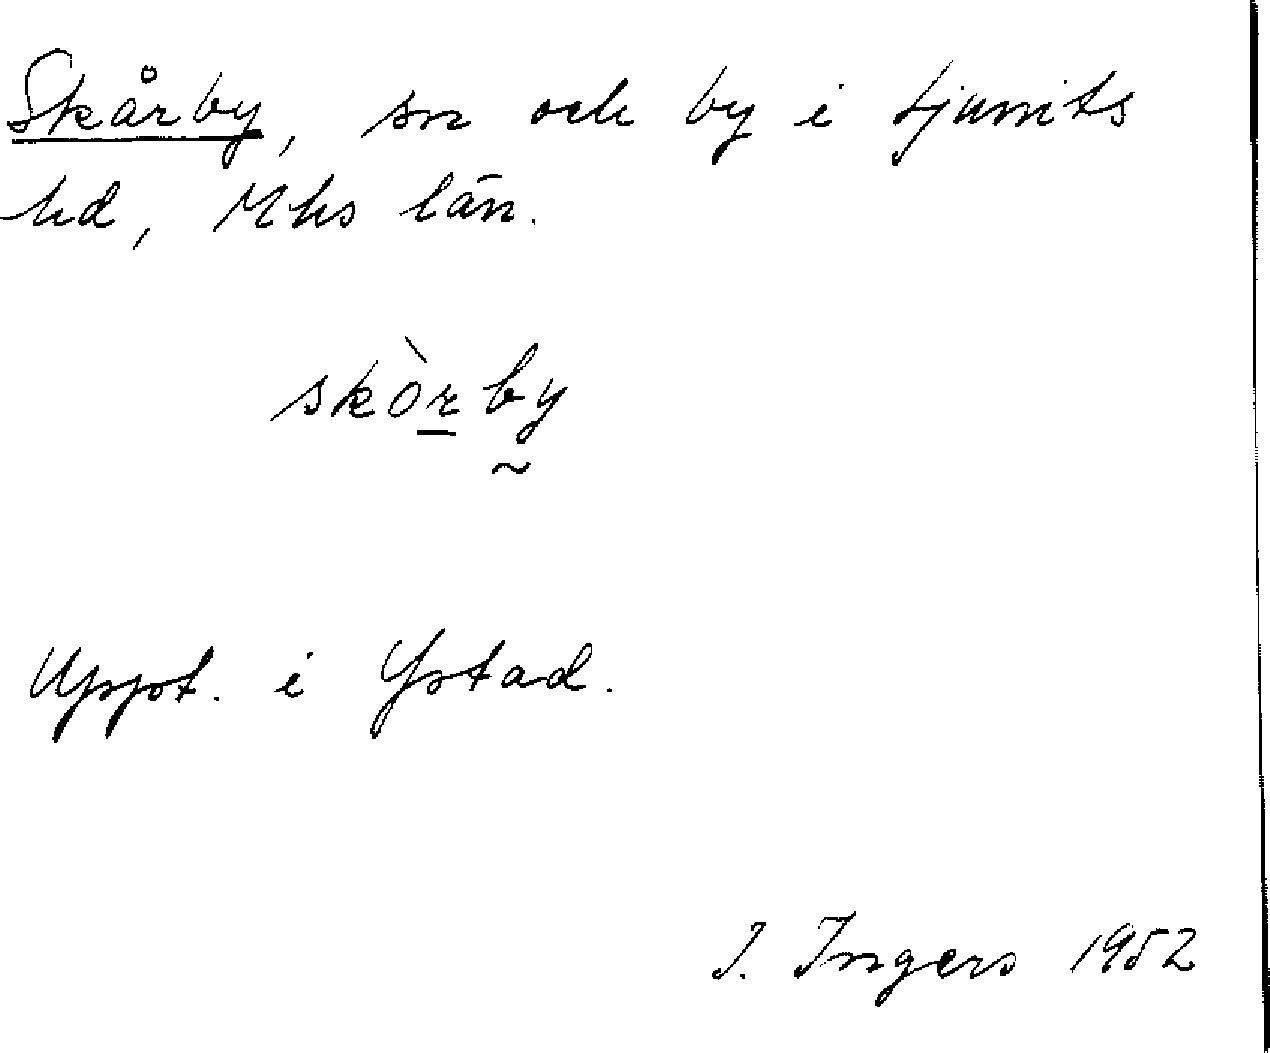 Skårby, sn och by i Ljunits
hd, Mhs län.
skòrby
Uppt. i Ystad.
I. Ingers 1952